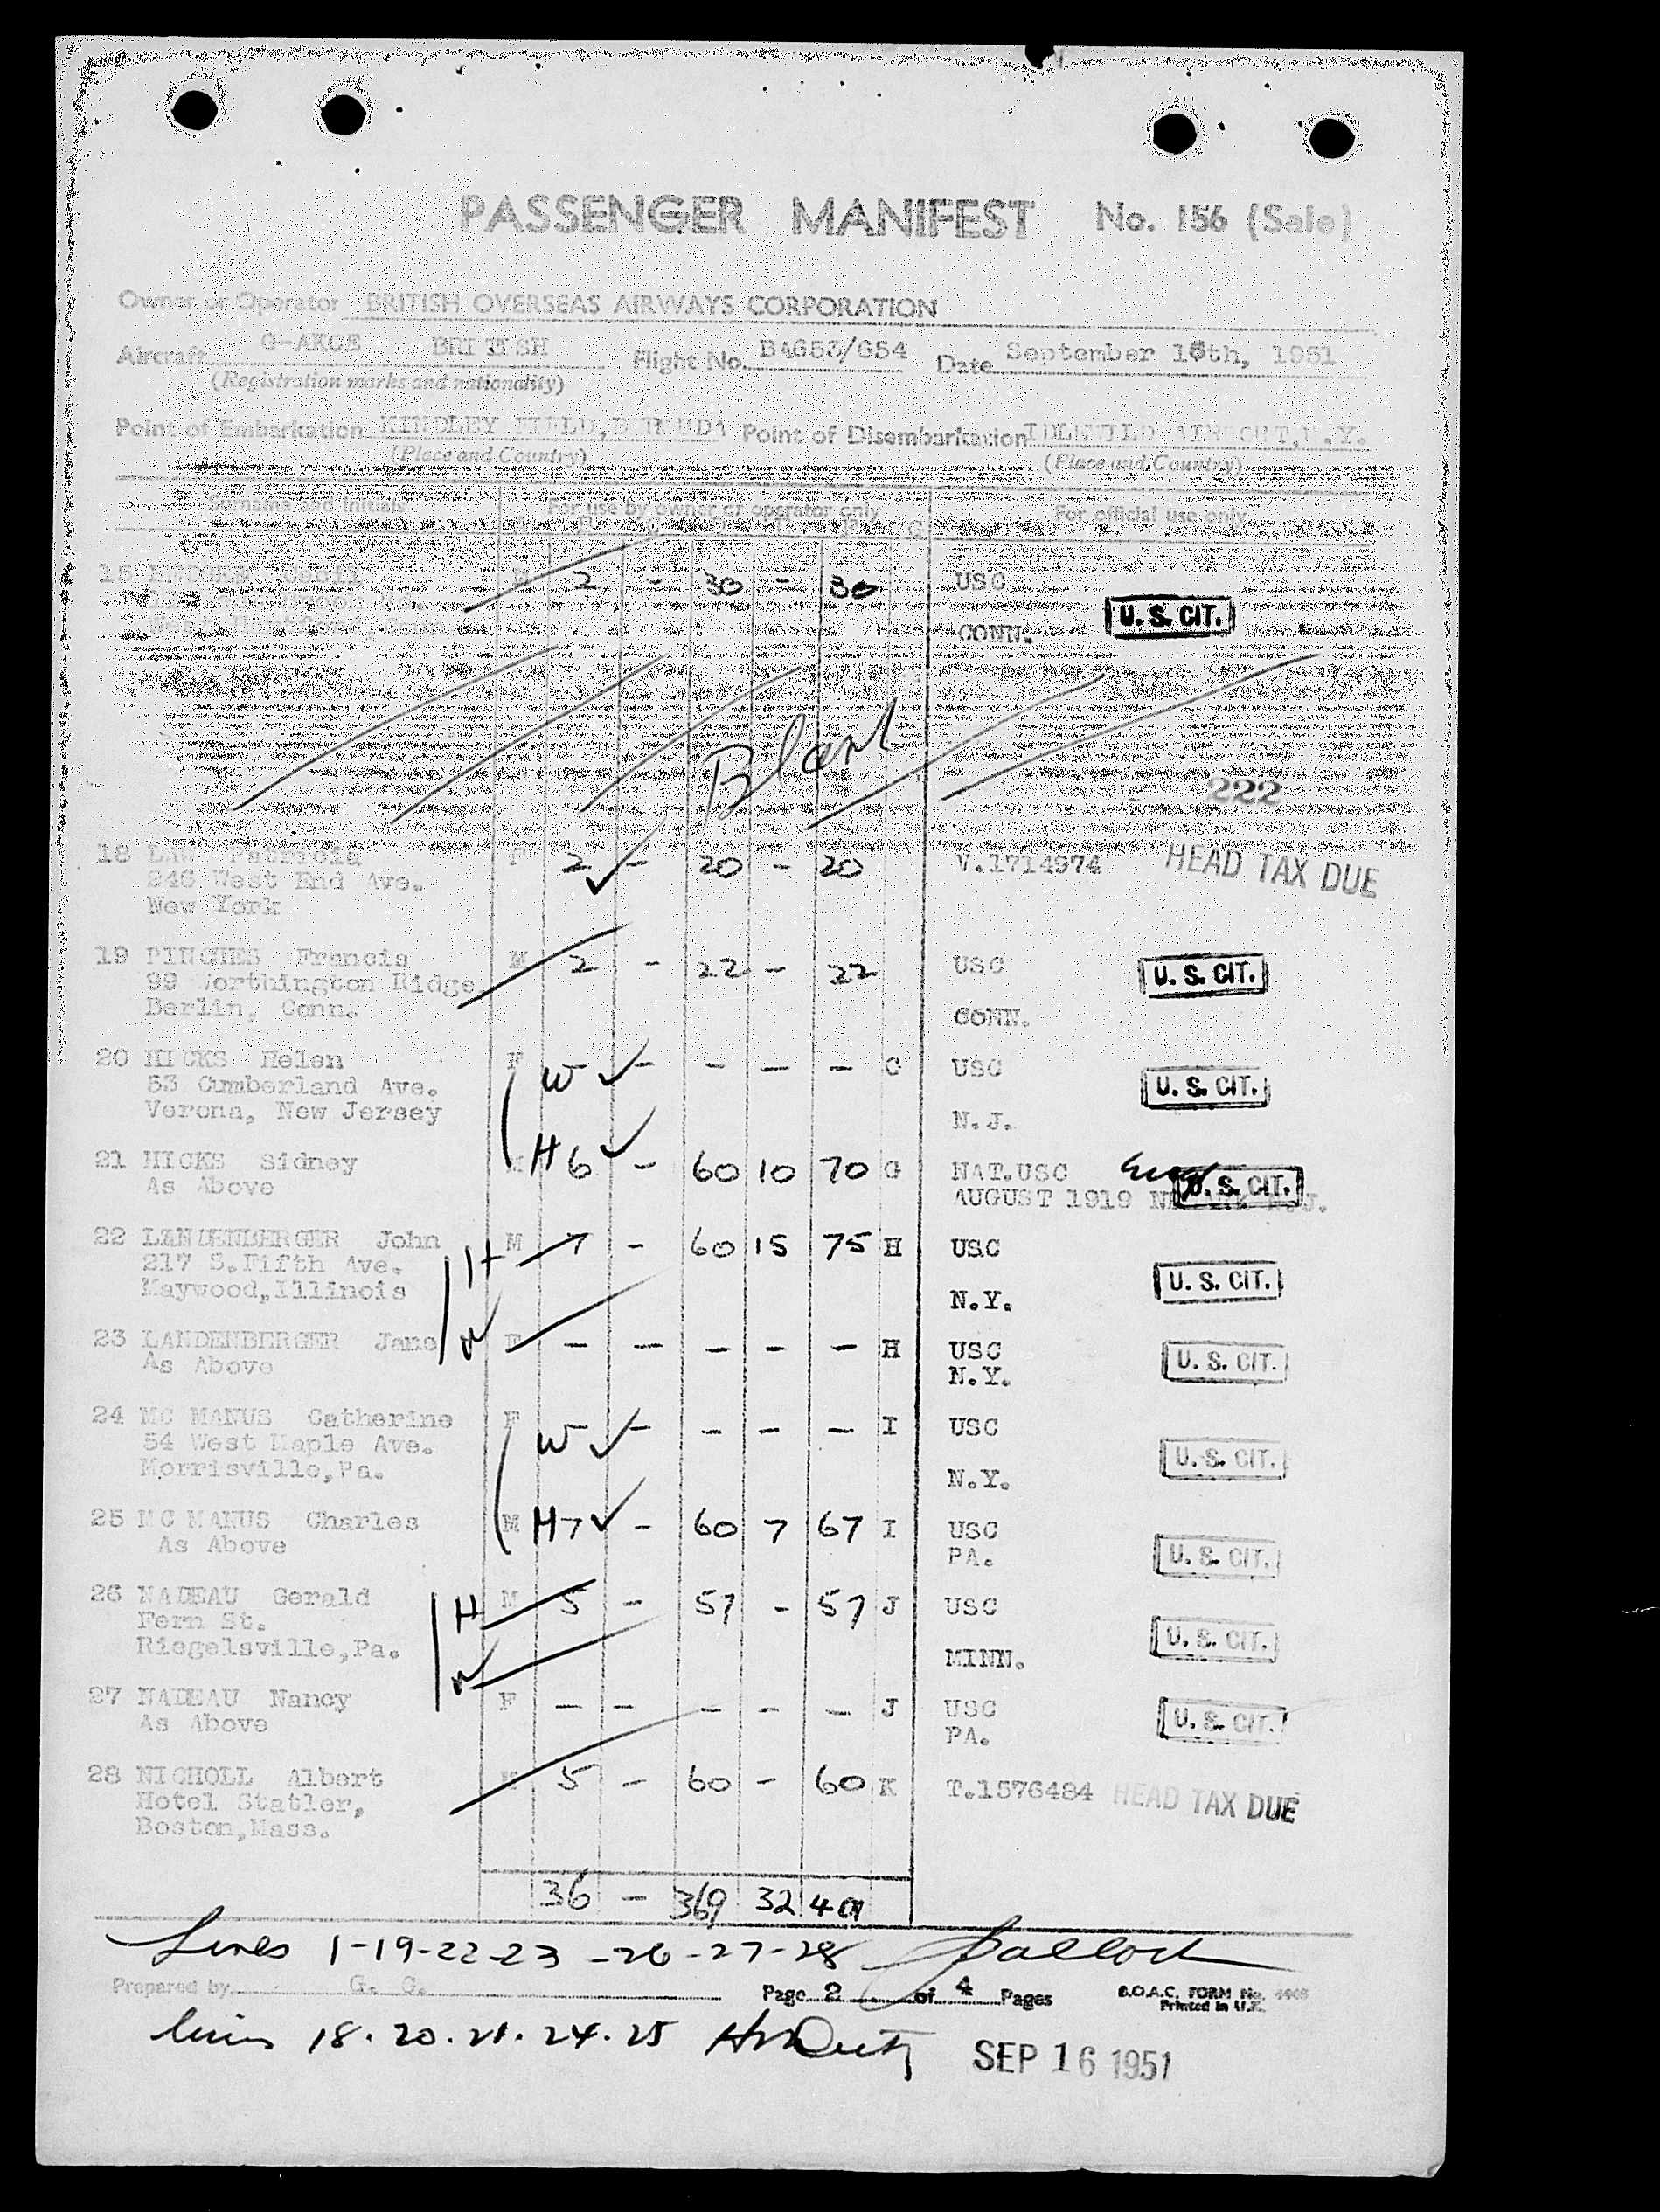 PASSENGER MANIFEST No. 156 (Sale)
Owner or Operator BRITISH OVERSEAS AIRWAYS CORPORATION
Aircraft G-AKCE BRITISH Flight No. BA653/654 Date September 16th, 1951
(Registration marks and nationality)
Point of Embarkation KINDLEY FIELD, BERMUDA Point of Disembarkation IDLEWILD AIRPORT, N.Y.
(Place and Country) (Place and Country)
Surname and Initials For use by owner or operator only For official use only
15 2 - 30 - 30 USC
CONN. U. S. CIT.
Blank
222
18 LAW Patricia F 2 - 20 - 20 V.1714974 HEAD TAX DUE
246 West End Ave.
New York
19 PINCHES Francis M 2 - 22 - 22 USC U. S. CIT.
99 Worthington Ridge,
Berlin, Conn. CONN.
20 HICKS Helen F W - - - - G USC
53 Cumberland Ave. U. S. CIT.
Verona, New Jersey N.J.
21 HICKS Sidney M H 6 - 60 10 70 G NAT.USC
As Above AUGUST 1919 U. S. CIT. N.J.
22 LANDENBERGER John H M 7 - 60 15 75 H USC
217 S.Fifth Ave. U. S. CIT.
Maywood,Illinois N.Y.
23 LANDENBERGER Jane W F - - - - - H USC U. S. CIT.
As Above N.Y.
24 MC MANUS Catherine F W - - - - I USC
54 West Maple Ave. U. S. CIT.
Morrisville,Pa. N.Y.
25 MC MANUS Charles M H 7 - 60 7 67 I USC
As Above PA. U. S. CIT.
26 NADEAU Gerald H M 5 - 57 - 57 J USC
Fern St. U. S. CIT.
Riegelsville,Pa. W MINN.
27 NADEAU Nancy F - - - - - J USC
As Above PA. U. S. CIT.
28 NICHOLL Albert M 5 - 60 - 60 K T.1576484 HEAD TAX DUE
Hotel Statler,
Boston,Mass.
36 - 369 32 401
Lines 1-19-22-23-26-27-28
Prepared by G. G. Page 2 of 4 Pages B.O.A.C. FORM No.
Printed in U.K.
lines 18.20.21.24.25 SEP 16 1951